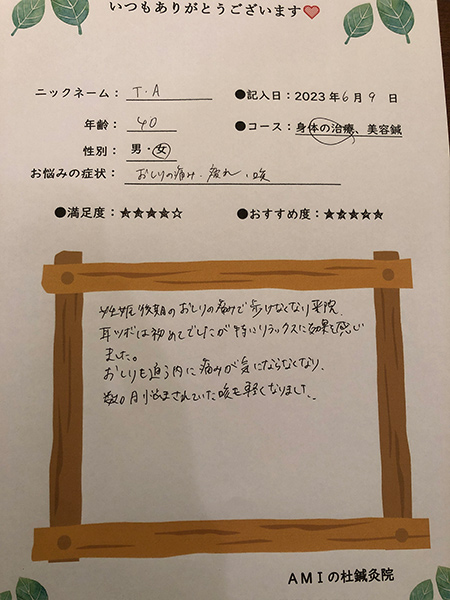 いつもありがとうございます
ニックネーム： T.A ●記入日：2023年6月9日
年齢： 40 ●コース：身体の治療、美容鍼
性別： 男・女
お悩みの症状： おしりの痛み、疲れ、咳
●満足度：★★★★☆ ●おすすめ度：★★★★★
妊娠後期のおしりの痛みで歩けなくなり来院。
耳ツボは初めてでしたが特にリラックスに効果を感じ
ました。
おしりも通う内に痛みが気にならなくなり、
数ヶ月悩まされていた咳も軽くなりました。
AMIの杜鍼灸院